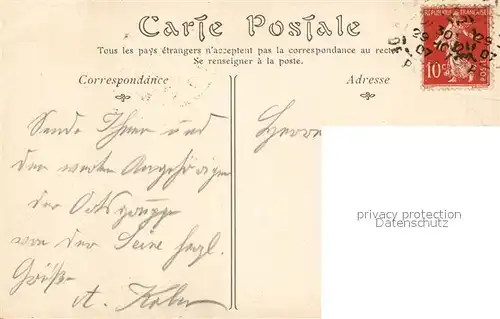 Carte Postale
Tous les pays étrangers n'acceptent pas la correspondance au recto
Se renseigner à la poste.
Correspondance
Adresse
RÉPUBLIQUE FRANÇAISE
10c
POSTES
Sende Ihnen und
den werten Angehörigen
der Ortsgruppe
von der Seine herzl.
Grüße
A.
Herrn
privacy protection
Datenschutz